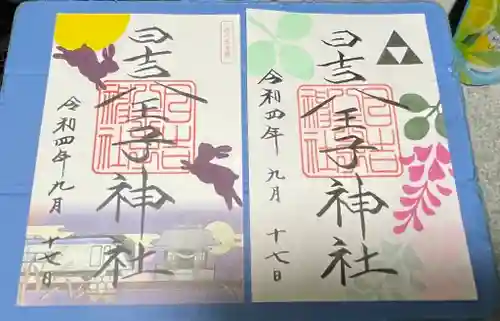 日吉八王子神社
令和四年九月
十七日
日吉八王子神社
令和四年九月
十七日